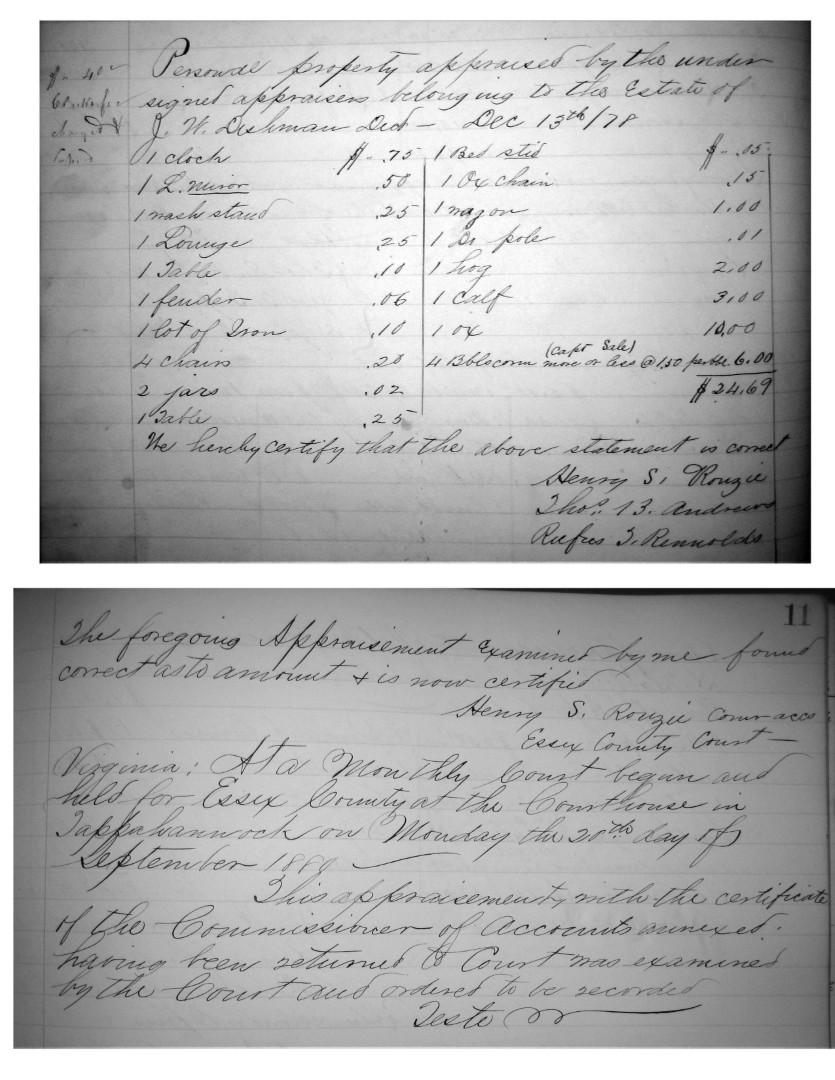 Personal property appraised by the under
signed appraisers belonging to the Estate of
J. W. Dishman Decd — Dec 13th/78
1 clock $ - .75
1 L. Mirror .50
1 wash stand .25
1 Lounge .25
1 Table .10
1 fender .06
1 lot of Iron .10
4 chairs .20
2 jars .02
1 Table .25
1 Bed stid $ - .05
1 Ox chain .15
1 wagon 1.00
1 Do pole .01
1 hog 2.00
1 calf 3.00
1 ox 10.00
(Capt Sale)
4 Bbls corn more or less @ 1.50 per bbl. 6.00
$ 24.69
We hereby certify that the above statement is correct
Henry S. Rouzie
Thos. B. Andrews
Rufus T. Rennolds
11
The foregoing Appraisement Examined by me found
correct as to amount & is now certified
Henry S. Rouzie Comr accs
Essex County Court —
Virginia: At a Monthly Court begun and
held for Essex County at the Courthouse in
Tappahannock on Monday the 20th day of
September 1880
This appraisement, with the certificate
of the Commissioner of Accounts annexed.
having been returned to Court was examined
by the Court and ordered to be recorded
Teste